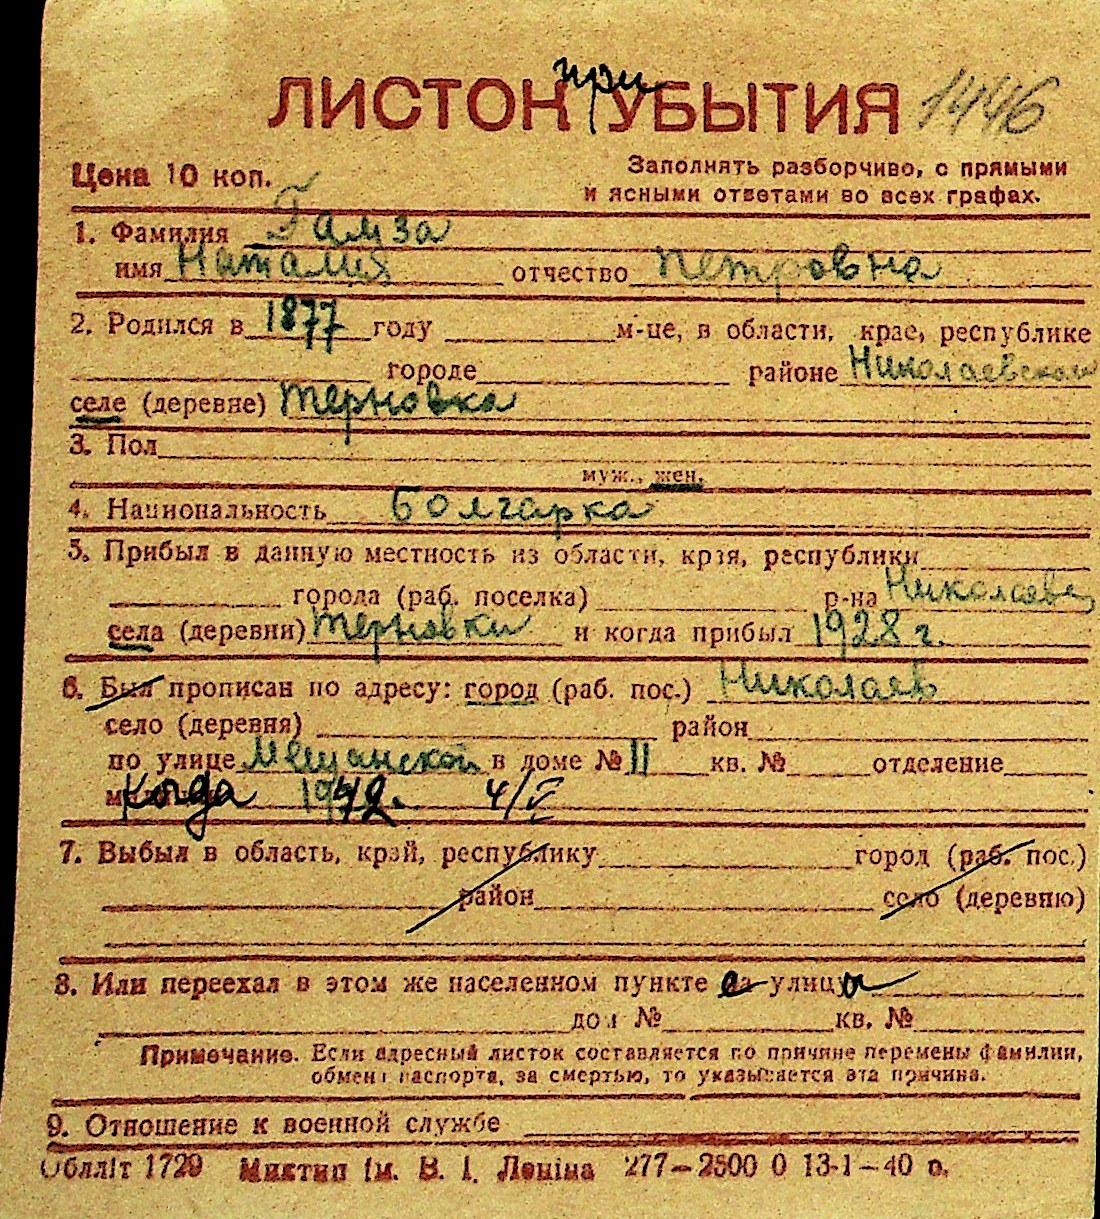 при
ЛИСТОК УБЫТИЯ 1446
Цена 10 коп.
Заполнять разборчиво, с прямыми
и ясными ответами во всех графах.
1. Фамилия Гамза
имя Наталия отчество Петровна
2. Родился в 1877 году м-це, в области, крае, республике
городе районе Николаевском
селе (деревне) Терновка
3. Пол
муж., жен.
4. Национальность Болгарка
5. Прибыл в данную местность из области, края, республики
города (раб. поселка) р-на Николаев
села (деревни) Терновки и когда прибыл 1928 г.
6. Был прописан по адресу: город (раб. пос.) Николаев
село (деревня) район
по улице Мещанской в доме № 11 кв. № отделение
Когда 1942. 4/V
7. Выбыл в область, край, республику город (раб. пос.)
район село (деревню)
8. Или переехал в этом же населенном пункте с улицы
дом № кв. №
Примечание. Если адресный листок составляется по причине перемены фамилии,
обмена паспорта, за смертью, то указывается эта причина.
9. Отношение к военной службе
Обллiт 1729 Миктип iм. В. I. Ленiна 277—2500 0 13-1—40 р.